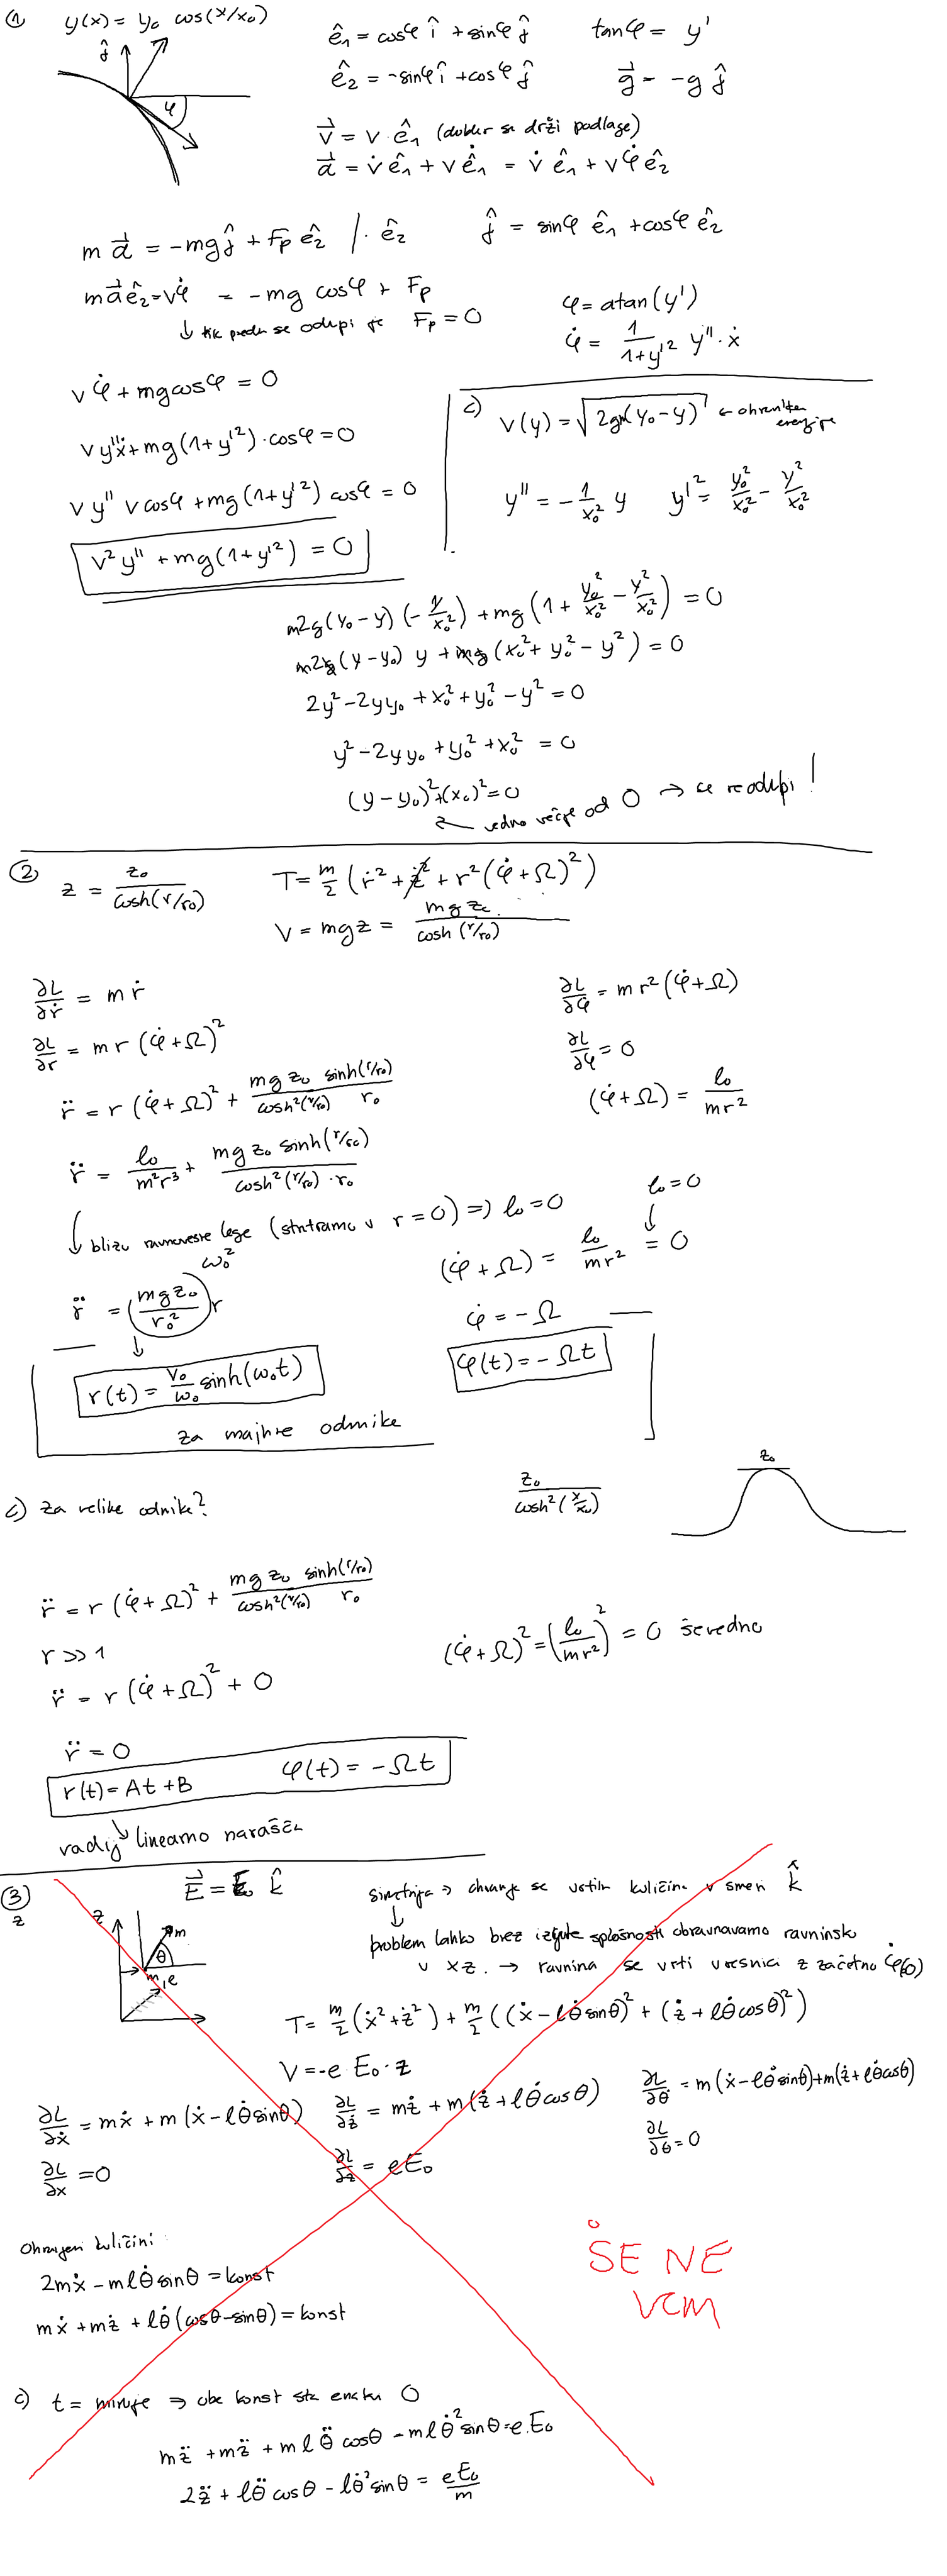 ① y(x) = y₀ cos(x/x₀)
ĵ
φ
ê₁ = cosφ î + sinφ ĵ    tanφ = y'
ê₂ = -sinφ î + cosφ ĵ    g⃗ = -g ĵ
v⃗ = v · ê₁ (dokler se drži podlage)
a⃗ = v̇ ê₁ + v ê̇₁ = v̇ ê₁ + v φ̇ ê₂
m a⃗ = -mg ĵ + Fp ê₂ / · ê₂    ĵ = sinφ ê₁ + cosφ ê₂
m a⃗ ê₂ = vφ̇ = -mg cosφ + Fp
↓ tik preden se odlepi je Fp = 0
φ = atan(y')
φ̇ = 1/(1+y'²) y'' · ẋ
vφ̇ + mg cosφ = 0
v y''ẋ + mg(1+y'²) · cosφ = 0
v y'' v cosφ + mg(1+y'²) cosφ = 0
v² y'' + mg(1+y'²) = 0
c) v(y) = √(2gm(y₀-y)) ← ohranitev energije
y'' = -1/x₀² y    y'² = y₀²/x₀² - y²/x₀²
m2g(y₀-y)(-y/x₀²) + mg(1 + y₀²/x₀² - y²/x₀²) = 0
m2g(y-y₀) y + mg(x₀² + y₀² - y²) = 0
2y² - 2yy₀ + x₀² + y₀² - y² = 0
y² - 2yy₀ + y₀² + x₀² = 0
(y-y₀)² + (x₀)² = 0
vedno večje od 0 → se ne odlepi!
② z = z₀/cosh(r/r₀)    T = m/2 (ṙ² + ż² + r²(φ̇+Ω)²)
V = mgz = mgz₀/cosh(r/r₀)
∂L/∂ṙ = mṙ    ∂L/∂φ̇ = mr²(φ̇+Ω)
∂L/∂r = mr(φ̇+Ω)²    ∂L/∂φ = 0
r̈ = r(φ̇+Ω)² + mgz₀ sinh(r/r₀)/cosh²(r/r₀) r₀    (φ̇+Ω) = l₀/mr²
r̈ = l₀/m²r³ + mgz₀ sinh(r/r₀)/cosh²(r/r₀) · r₀
↓ blizu ravnovesne lege (štartamo v r=0) ⇒ l₀=0
l₀=0
↓
(φ̇+Ω) = l₀/mr² = 0
ω₀²
r̈ = (mgz₀/r₀²) r    φ̇ = -Ω
r(t) = v₀/ω₀ sinh(ω₀t)    φ(t) = -Ωt
za majhne odmike
c) za velike odmike?    z₀/cosh²(x/x₀)    z₀
r̈ = r(φ̇+Ω)² + mgz₀ sinh(r/r₀)/cosh²(r/r₀) r₀
r >> 1    (φ̇+Ω)² = (l₀/mr²)² = 0 še vedno
r̈ = r(φ̇+Ω)² + 0
r̈ = 0
r(t) = At + B    φ(t) = -Ωt
radij linearno narašča
③ E⃗ = E₀ k̂
z
z
m
θ
m, e
simetrija → ohranja se vrtilna količina v smeri k̂
↓
problem lahko brez izgube splošnosti obravnavamo ravninsko
v xz. → ravnina se vrti z začetno φ̇(0)
T = m/2 (ẋ²+ż²) + m/2 ((ẋ - lθ̇ sinθ)² + (ż + lθ̇ cosθ)²)
V = -e · E₀ · z
∂L/∂ẋ = mẋ + m(ẋ - lθ̇ sinθ)    ∂L/∂ż = mż + m(ż + lθ̇ cosθ)    ∂L/∂θ̇ = m(ẋ - lθ̇ sinθ) + m(ż + lθ̇ cosθ)
∂L/∂x = 0    ∂L/∂z = eE₀    ∂L/∂θ = 0
Ohranjeni količini:
2mẋ - mlθ̇ sinθ = konst
mẋ + mż + lθ̇(cosθ - sinθ) = konst
ŠE NE
VEM
c) t = miruje ⇒ obe konst sta enaki 0
mz̈ + mz̈ + mlθ̈ cosθ - mlθ̇² sinθ = e E₀
2z̈ + lθ̈ cosθ - lθ̇² sinθ = eE₀/m